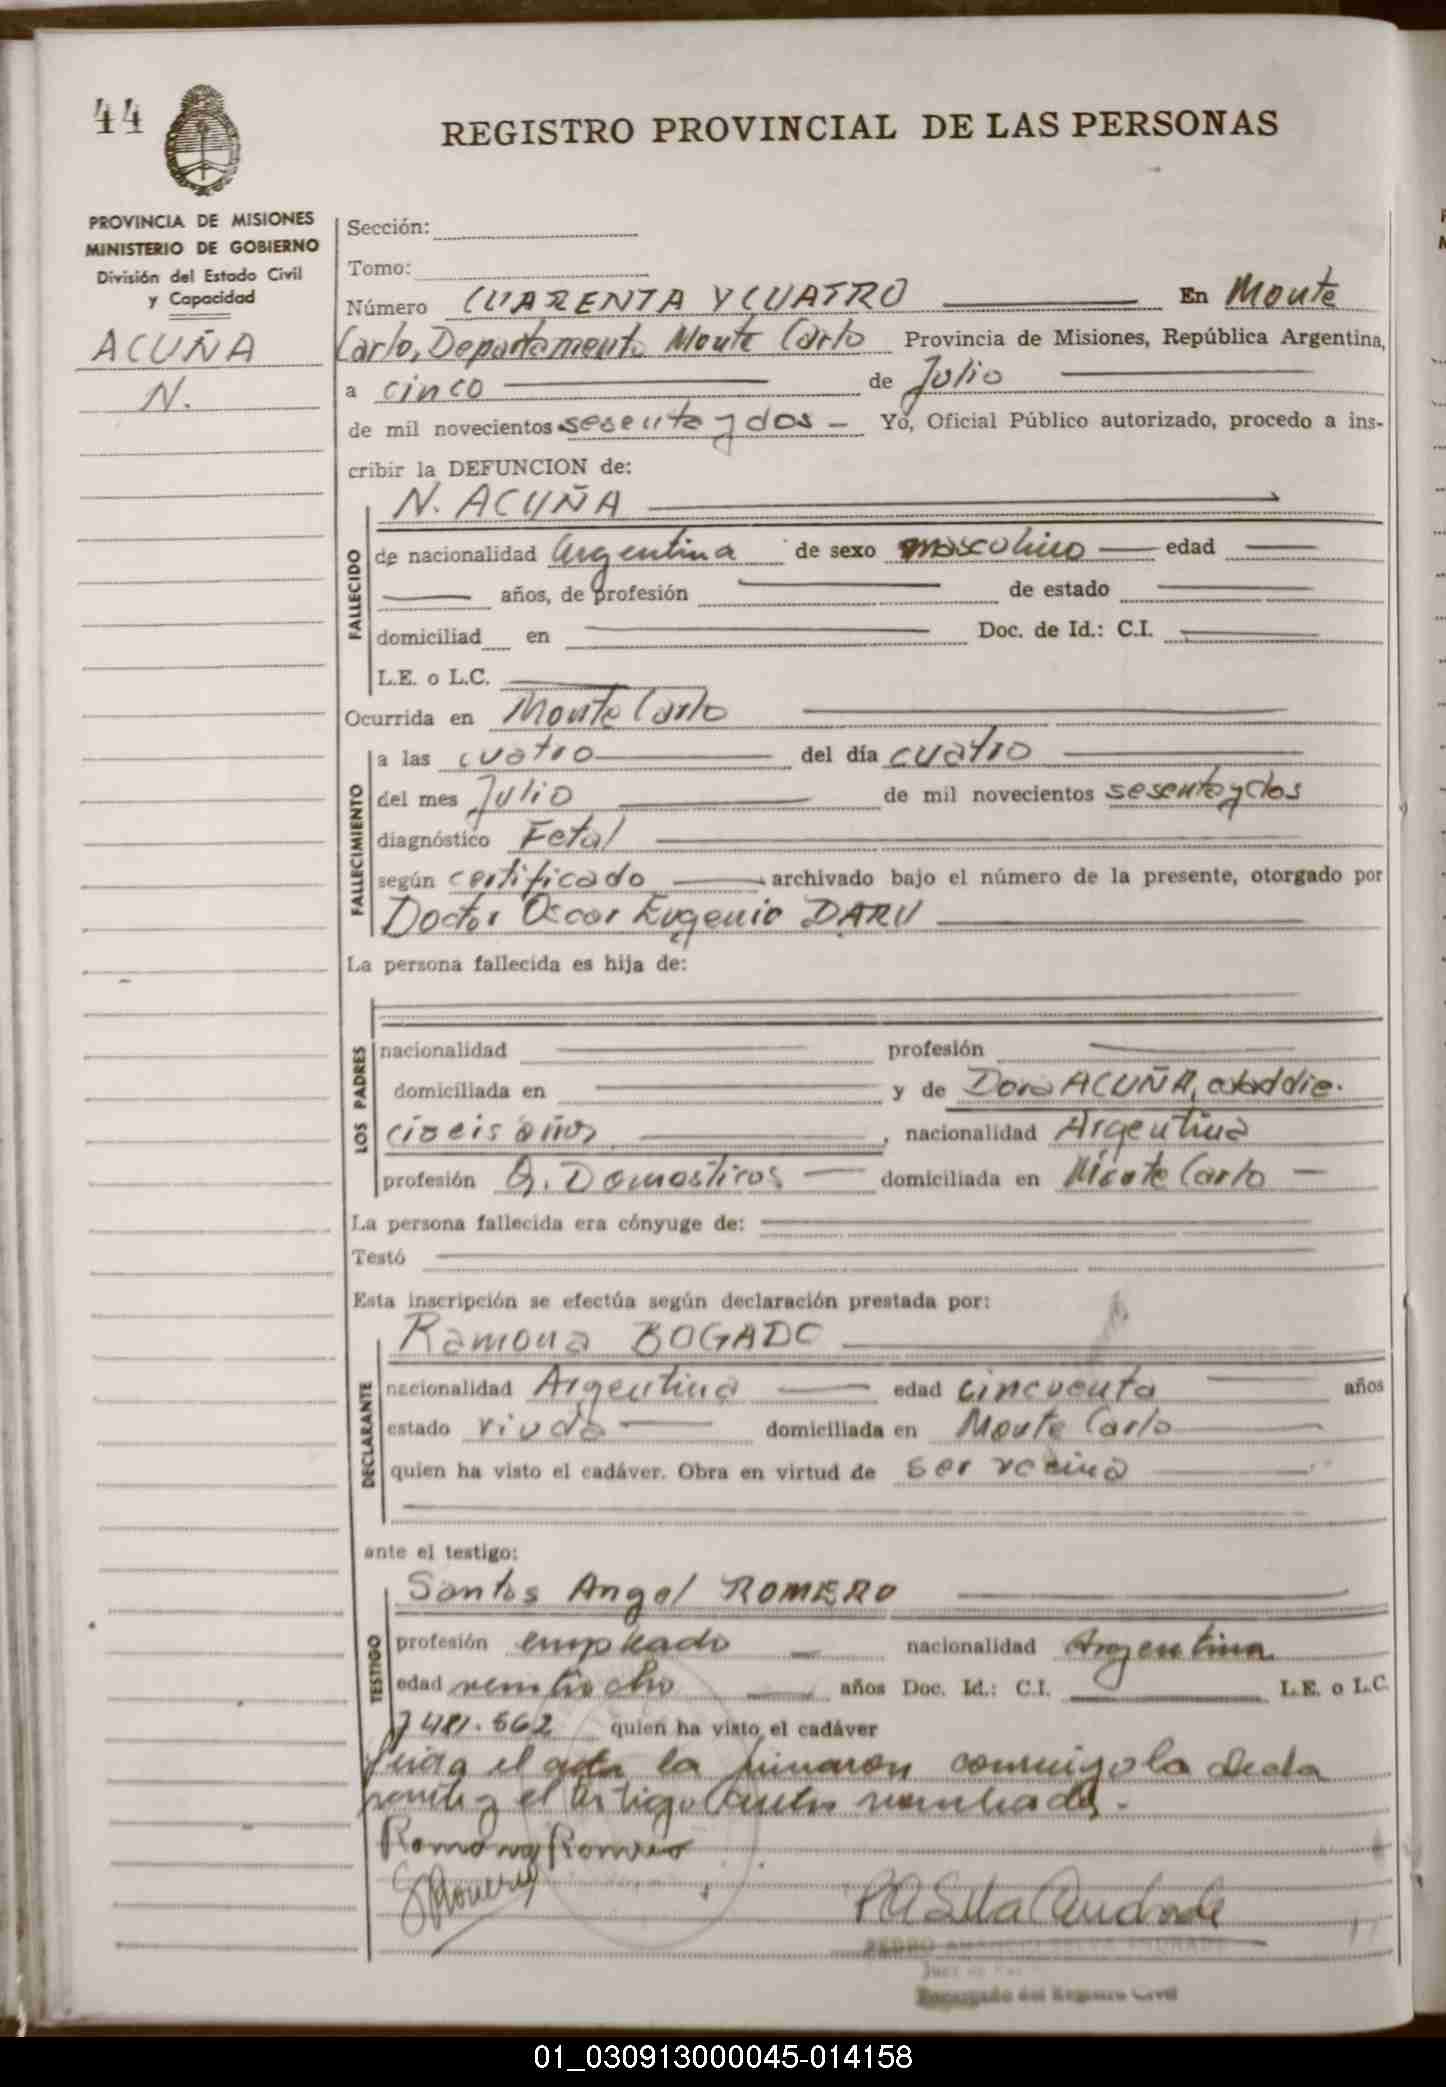 44
REGISTRO PROVINCIAL DE LAS PERSONAS
PROVINCIA DE MISIONES
MINISTERIO DE GOBIERNO
División del Estado Civil
y Capacidad
ACUÑA
N.
Sección:
Tomo:
Número CUARENTA Y CUATRO En Monte
Carlo, Departamento Monte Carlo Provincia de Misiones, República Argentina,
a cinco de Julio
de mil novecientos sesenta y dos - Yo, Oficial Público autorizado, procedo a ins-
cribir la DEFUNCION de:
N. ACUÑA
FALLECIDO
de nacionalidad Argentina de sexo masculino edad
años, de profesión de estado
domiciliad en Doc. de Id.: C.I.
L.E. o L.C.
Ocurrida en Monte Carlo
FALLECIMIENTO
a las cuatro del día cuatro
del mes Julio de mil novecientos sesenta y dos
diagnóstico Fetal
según certificado archivado bajo el número de la presente, otorgado por
Doctor Oscar Eugenio DARU
La persona fallecida es hija de:
LOS PADRES
nacionalidad profesión
domiciliada en y de Dora ACUÑA, edad die-
ciseis años, nacionalidad Argentina
profesión Q. Domesticos domiciliada en Monte Carlo -
La persona fallecida era cónyuge de:
Testó
Esta inscripción se efectúa según declaración prestada por:
Ramona BOGADO
DECLARANTE
nacionalidad Argentina edad cincuenta años
estado viuda domiciliada en Monte Carlo
quien ha visto el cadáver. Obra en virtud de ser vecina
ante el testigo:
Santos Angel ROMERO
TESTIGO
profesión empleado nacionalidad Argentina
edad veintiocho años Doc. Id.: C.I. L.E. o L.C.
7481.562 quien ha visto el cadáver
el acta la firmaron conmigo la decla
rante y el testigo nombrado.
Romona Romero
SRomero
PASilva Andrade
PEDRO ANDRADE
Juez de Paz
Encargado del Registro Civil
01_030913000045-014158